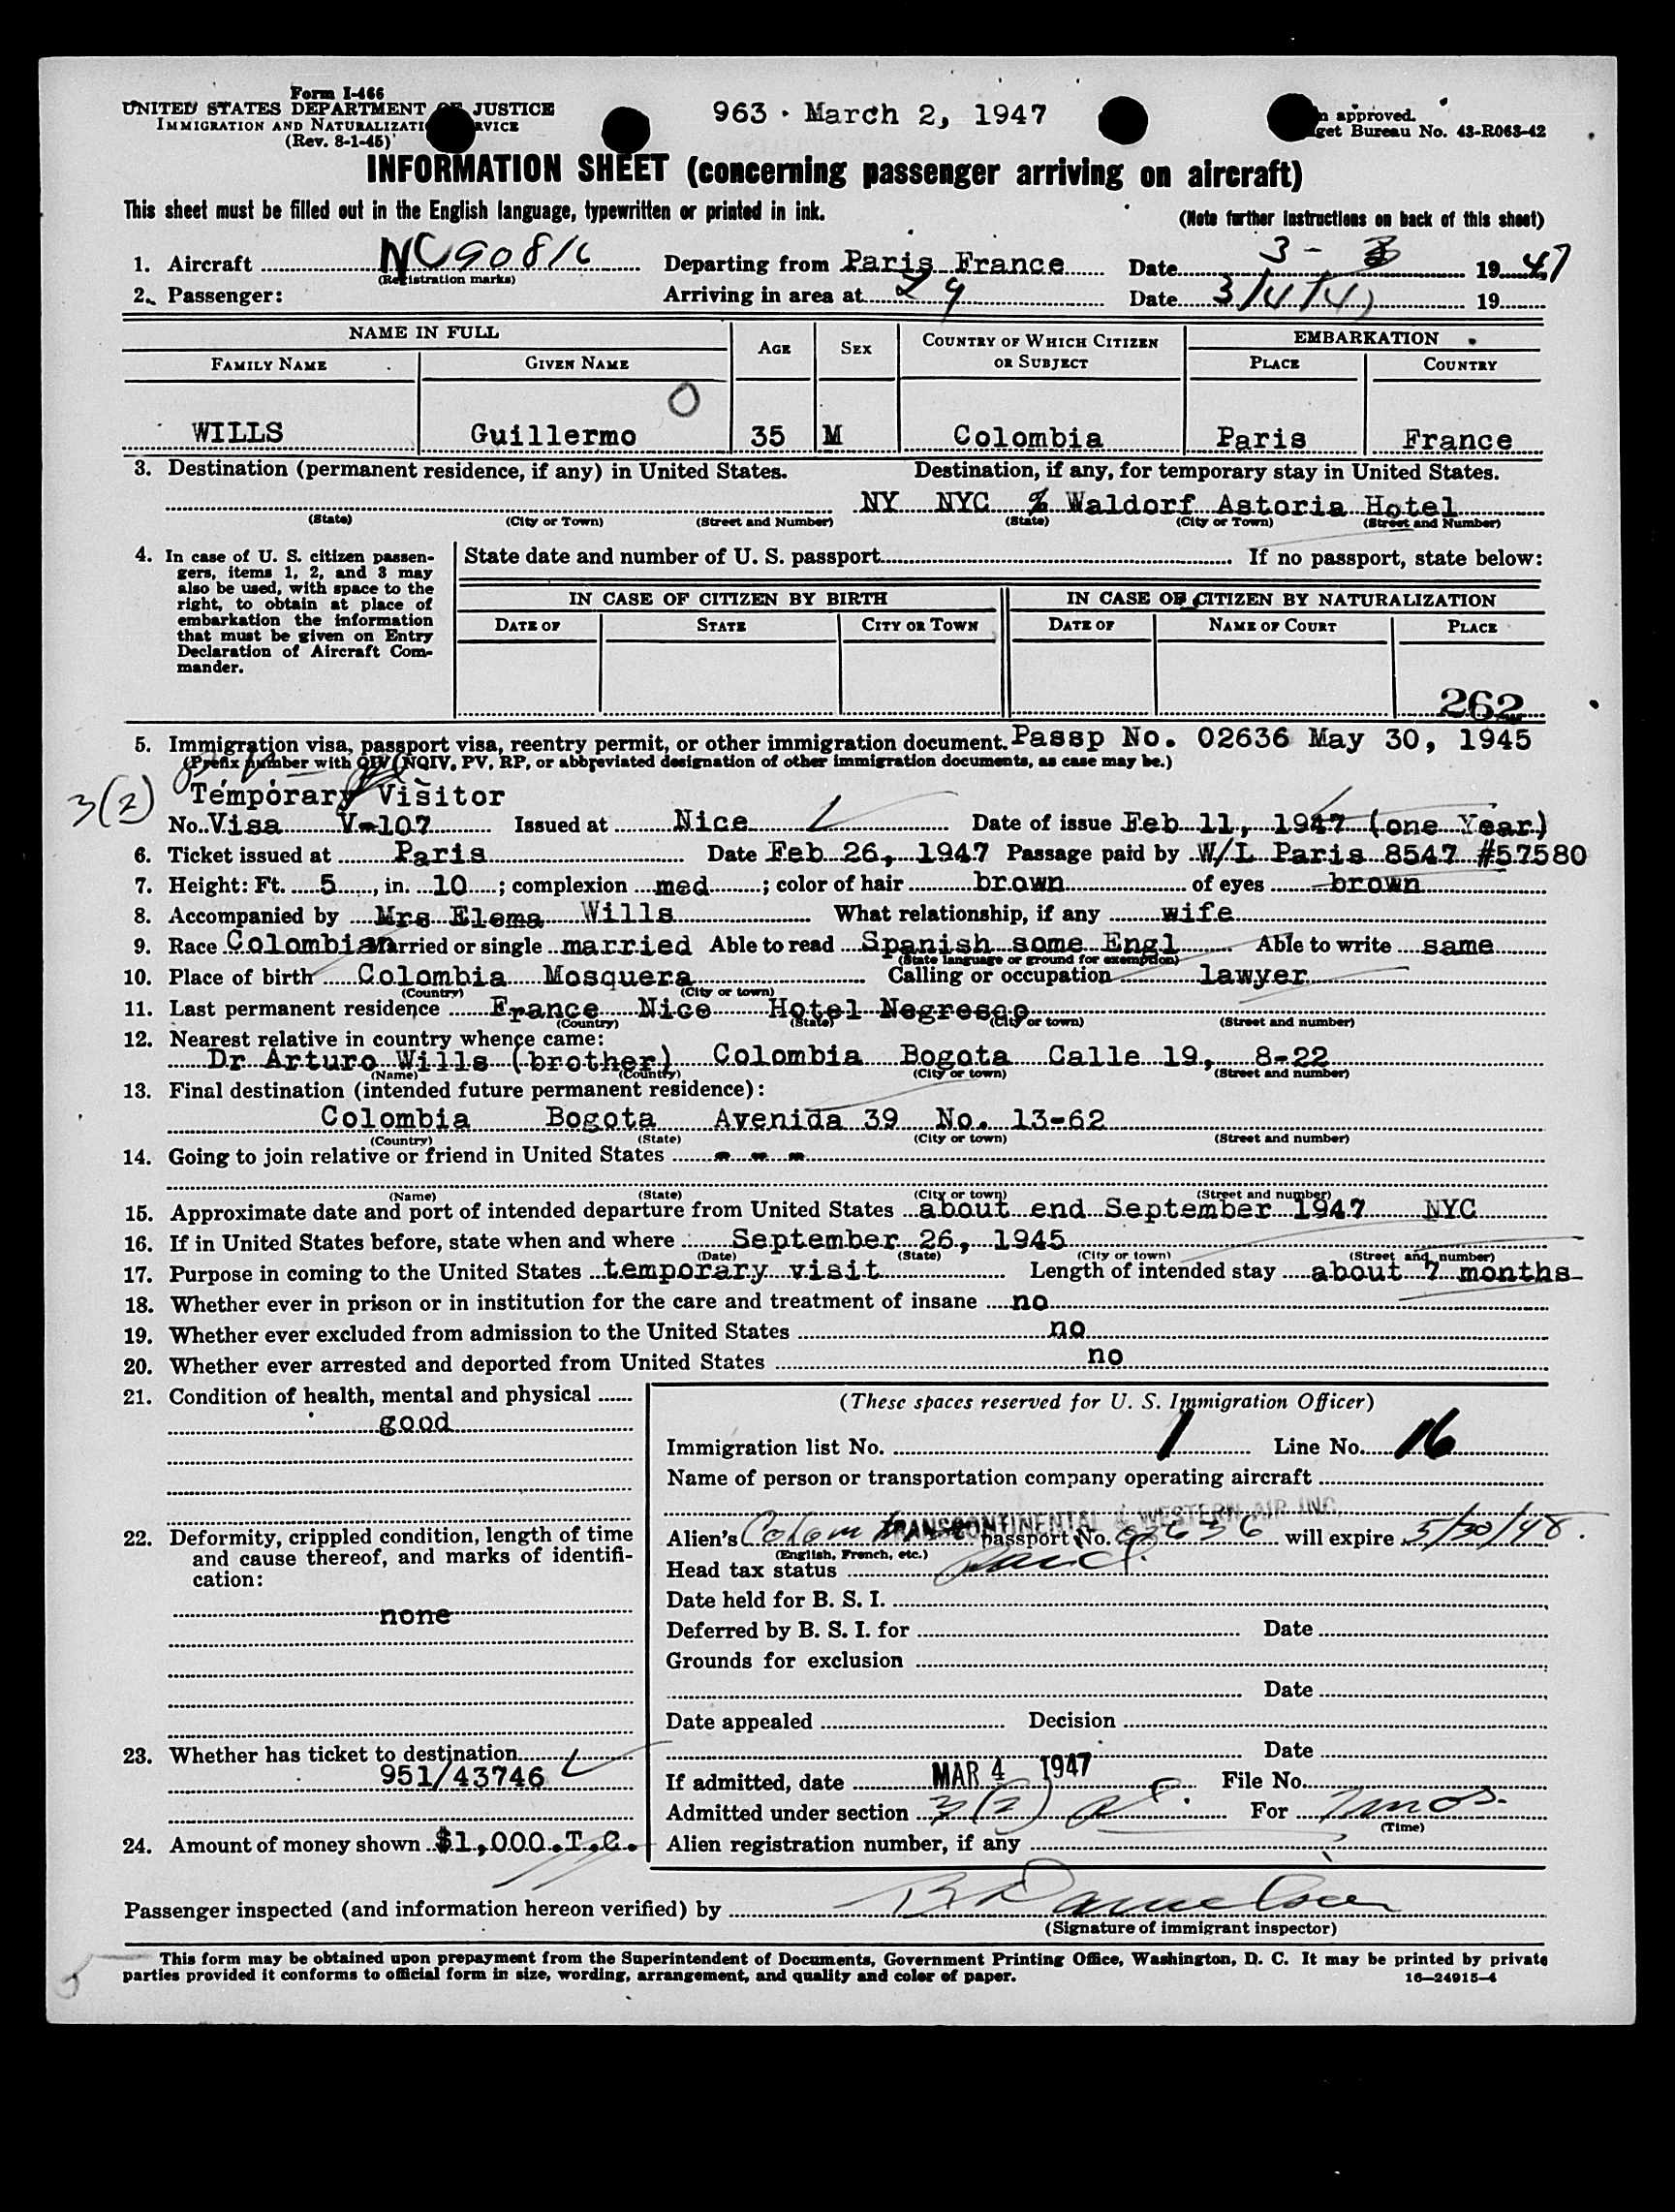 Form I-466
UNITED STATES DEPARTMENT OF JUSTICE
IMMIGRATION AND NATURALIZATI RVICE
(Rev. 8-1-45)
963 · March 2, 1947
approved.
get Bureau No. 43-R063-42
INFORMATION SHEET (concerning passenger arriving on aircraft)
This sheet must be filled out in the English language, typewritten or printed in ink.
(Note further instructions on back of this sheet)
1. Aircraft NC90816 Departing from Paris France Date 3 - 3 1947
(Registration marks)
2. Passenger: Arriving in area at Date 3/4/47 19
NAME IN FULL AGE SEX COUNTRY OF WHICH CITIZEN OR SUBJECT EMBARKATION
FAMILY NAME GIVEN NAME PLACE COUNTRY
O
WILLS Guillermo 35 M Colombia Paris France
3. Destination (permanent residence, if any) in United States. Destination, if any, for temporary stay in United States.
NY NYC % Waldorf Astoria Hotel
(State) (City or Town) (Street and Number) (State) (City or Town) (Street and Number)
4. In case of U. S. citizen passengers, items 1, 2, and 3 may also be used, with space to the right, to obtain at place of embarkation the information that must be given on Entry Declaration of Aircraft Commander.
State date and number of U. S. passport If no passport, state below:
IN CASE OF CITIZEN BY BIRTH IN CASE OF CITIZEN BY NATURALIZATION
DATE OF STATE CITY OR TOWN DATE OF NAME OF COURT PLACE
262
5. Immigration visa, passport visa, reentry permit, or other immigration document. Passp No. 02636 May 30, 1945
(Prefix number with QIV, NQIV, PV, RP, or abbreviated designation of other immigration documents, as case may be.)
3(2) Temporary Visitor
No. Visa V-107 Issued at Nice Date of issue Feb 11, 1947 (one Year)
6. Ticket issued at Paris Date Feb 26, 1947 Passage paid by W/L Paris 8547 #57580
7. Height: Ft. 5, in. 10; complexion med; color of hair brown of eyes brown
8. Accompanied by Mrs Elema Wills What relationship, if any wife
9. Race Colombian Married or single married Able to read Spanish some Engl Able to write same
(State language or ground for exemption)
10. Place of birth Colombia Mosquera Calling or occupation lawyer
(Country) (City or town)
11. Last permanent residence France Nice Hotel Negresco
(Country) (State) (City or town) (Street and number)
12. Nearest relative in country whence came:
Dr Arturo Wills (brother) Colombia Bogota Calle 19, 8-22
(Name) (Country) (City or town) (Street and number)
13. Final destination (intended future permanent residence):
Colombia Bogota Avenida 39 No. 13-62
(Country) (State) (City or town) (Street and number)
14. Going to join relative or friend in United States - - -
(Name) (State) (City or town) (Street and number)
15. Approximate date and port of intended departure from United States about end September 1947 NYC
16. If in United States before, state when and where September 26, 1945
(Date) (State) (City or town) (Street and number)
17. Purpose in coming to the United States temporary visit Length of intended stay about 7 months
18. Whether ever in prison or in institution for the care and treatment of insane no
19. Whether ever excluded from admission to the United States no
20. Whether ever arrested and deported from United States no
21. Condition of health, mental and physical
good
22. Deformity, crippled condition, length of time and cause thereof, and marks of identification:
none
23. Whether has ticket to destination
951/43746
24. Amount of money shown $1,000.T.C.
(These spaces reserved for U. S. Immigration Officer)
Immigration list No. 1 Line No. 16
Name of person or transportation company operating aircraft
TRANSCONTINENTAL & WESTERN AIR INC.
Alien's passport No. 02636 will expire 5/30/48.
(English, French, etc.)
Head tax status
Date held for B. S. I.
Deferred by B. S. I. for Date
Grounds for exclusion
Date
Date appealed Decision
Date
If admitted, date MAR 4 1947 File No.
Admitted under section 3(2) For 7 mos.
(Time)
Alien registration number, if any
Passenger inspected (and information hereon verified) by
(Signature of immigrant inspector)
This form may be obtained upon prepayment from the Superintendent of Documents, Government Printing Office, Washington, D. C. It may be printed by private
parties provided it conforms to official form in size, wording, arrangement, and quality and color of paper. 16—24915-4